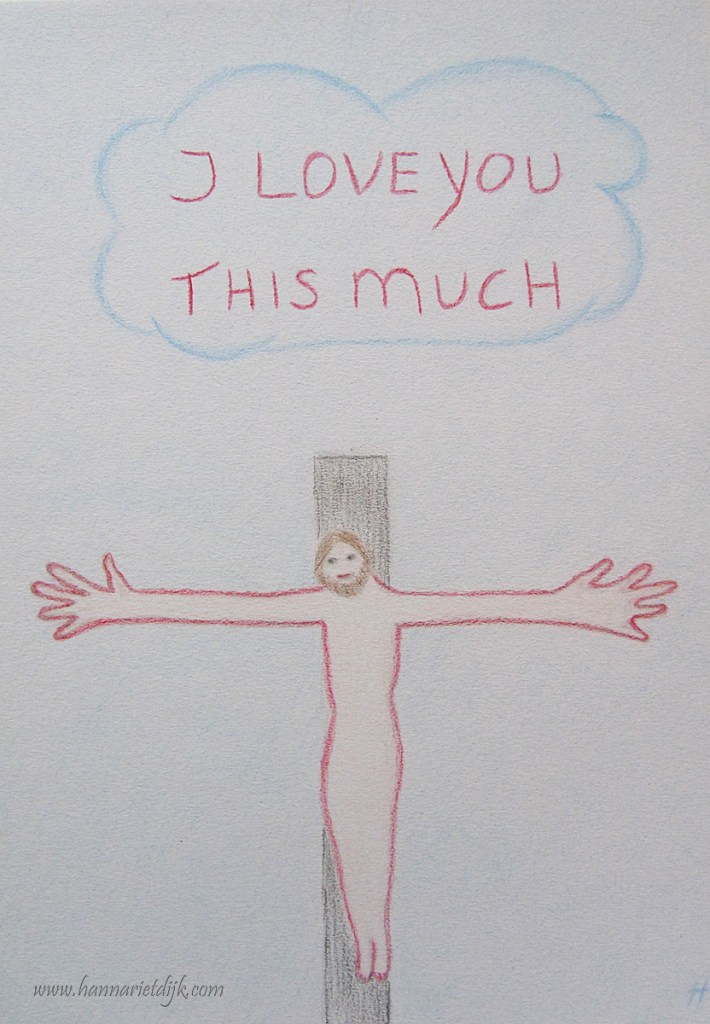 I LOVE YOU
THIS MUCH
www.hannarietdijk.com
H